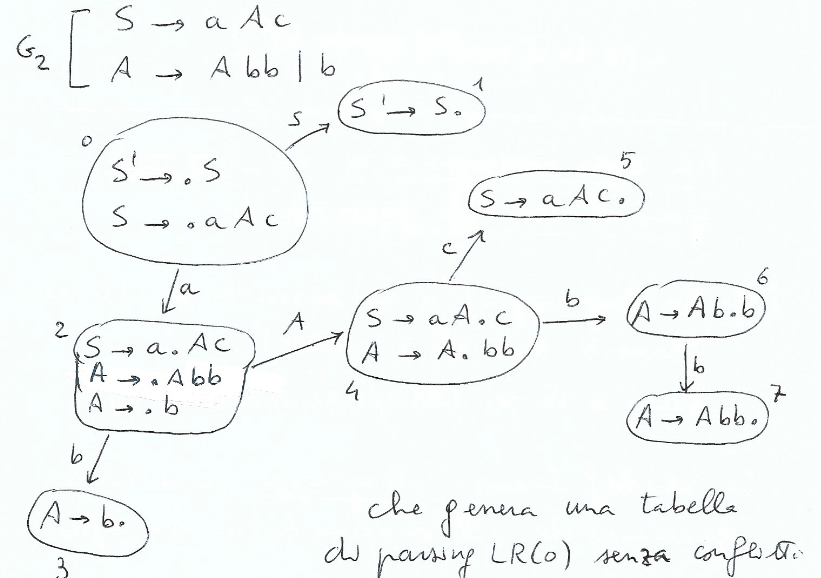 G₂ [ S → a A c
A → A bb | b
0
S' → . S
S → . a A c
S
1
S' → S.
a
2
S → a. A c
A → . A bb
A → . b
A
4
S → a A. c
A → A. bb
c
5
S → a A c.
b
6
A → A b. b
b
7
A → A bb.
b
A → b.
3
che genera una tabella
di parsing LR(0) senza conflitti